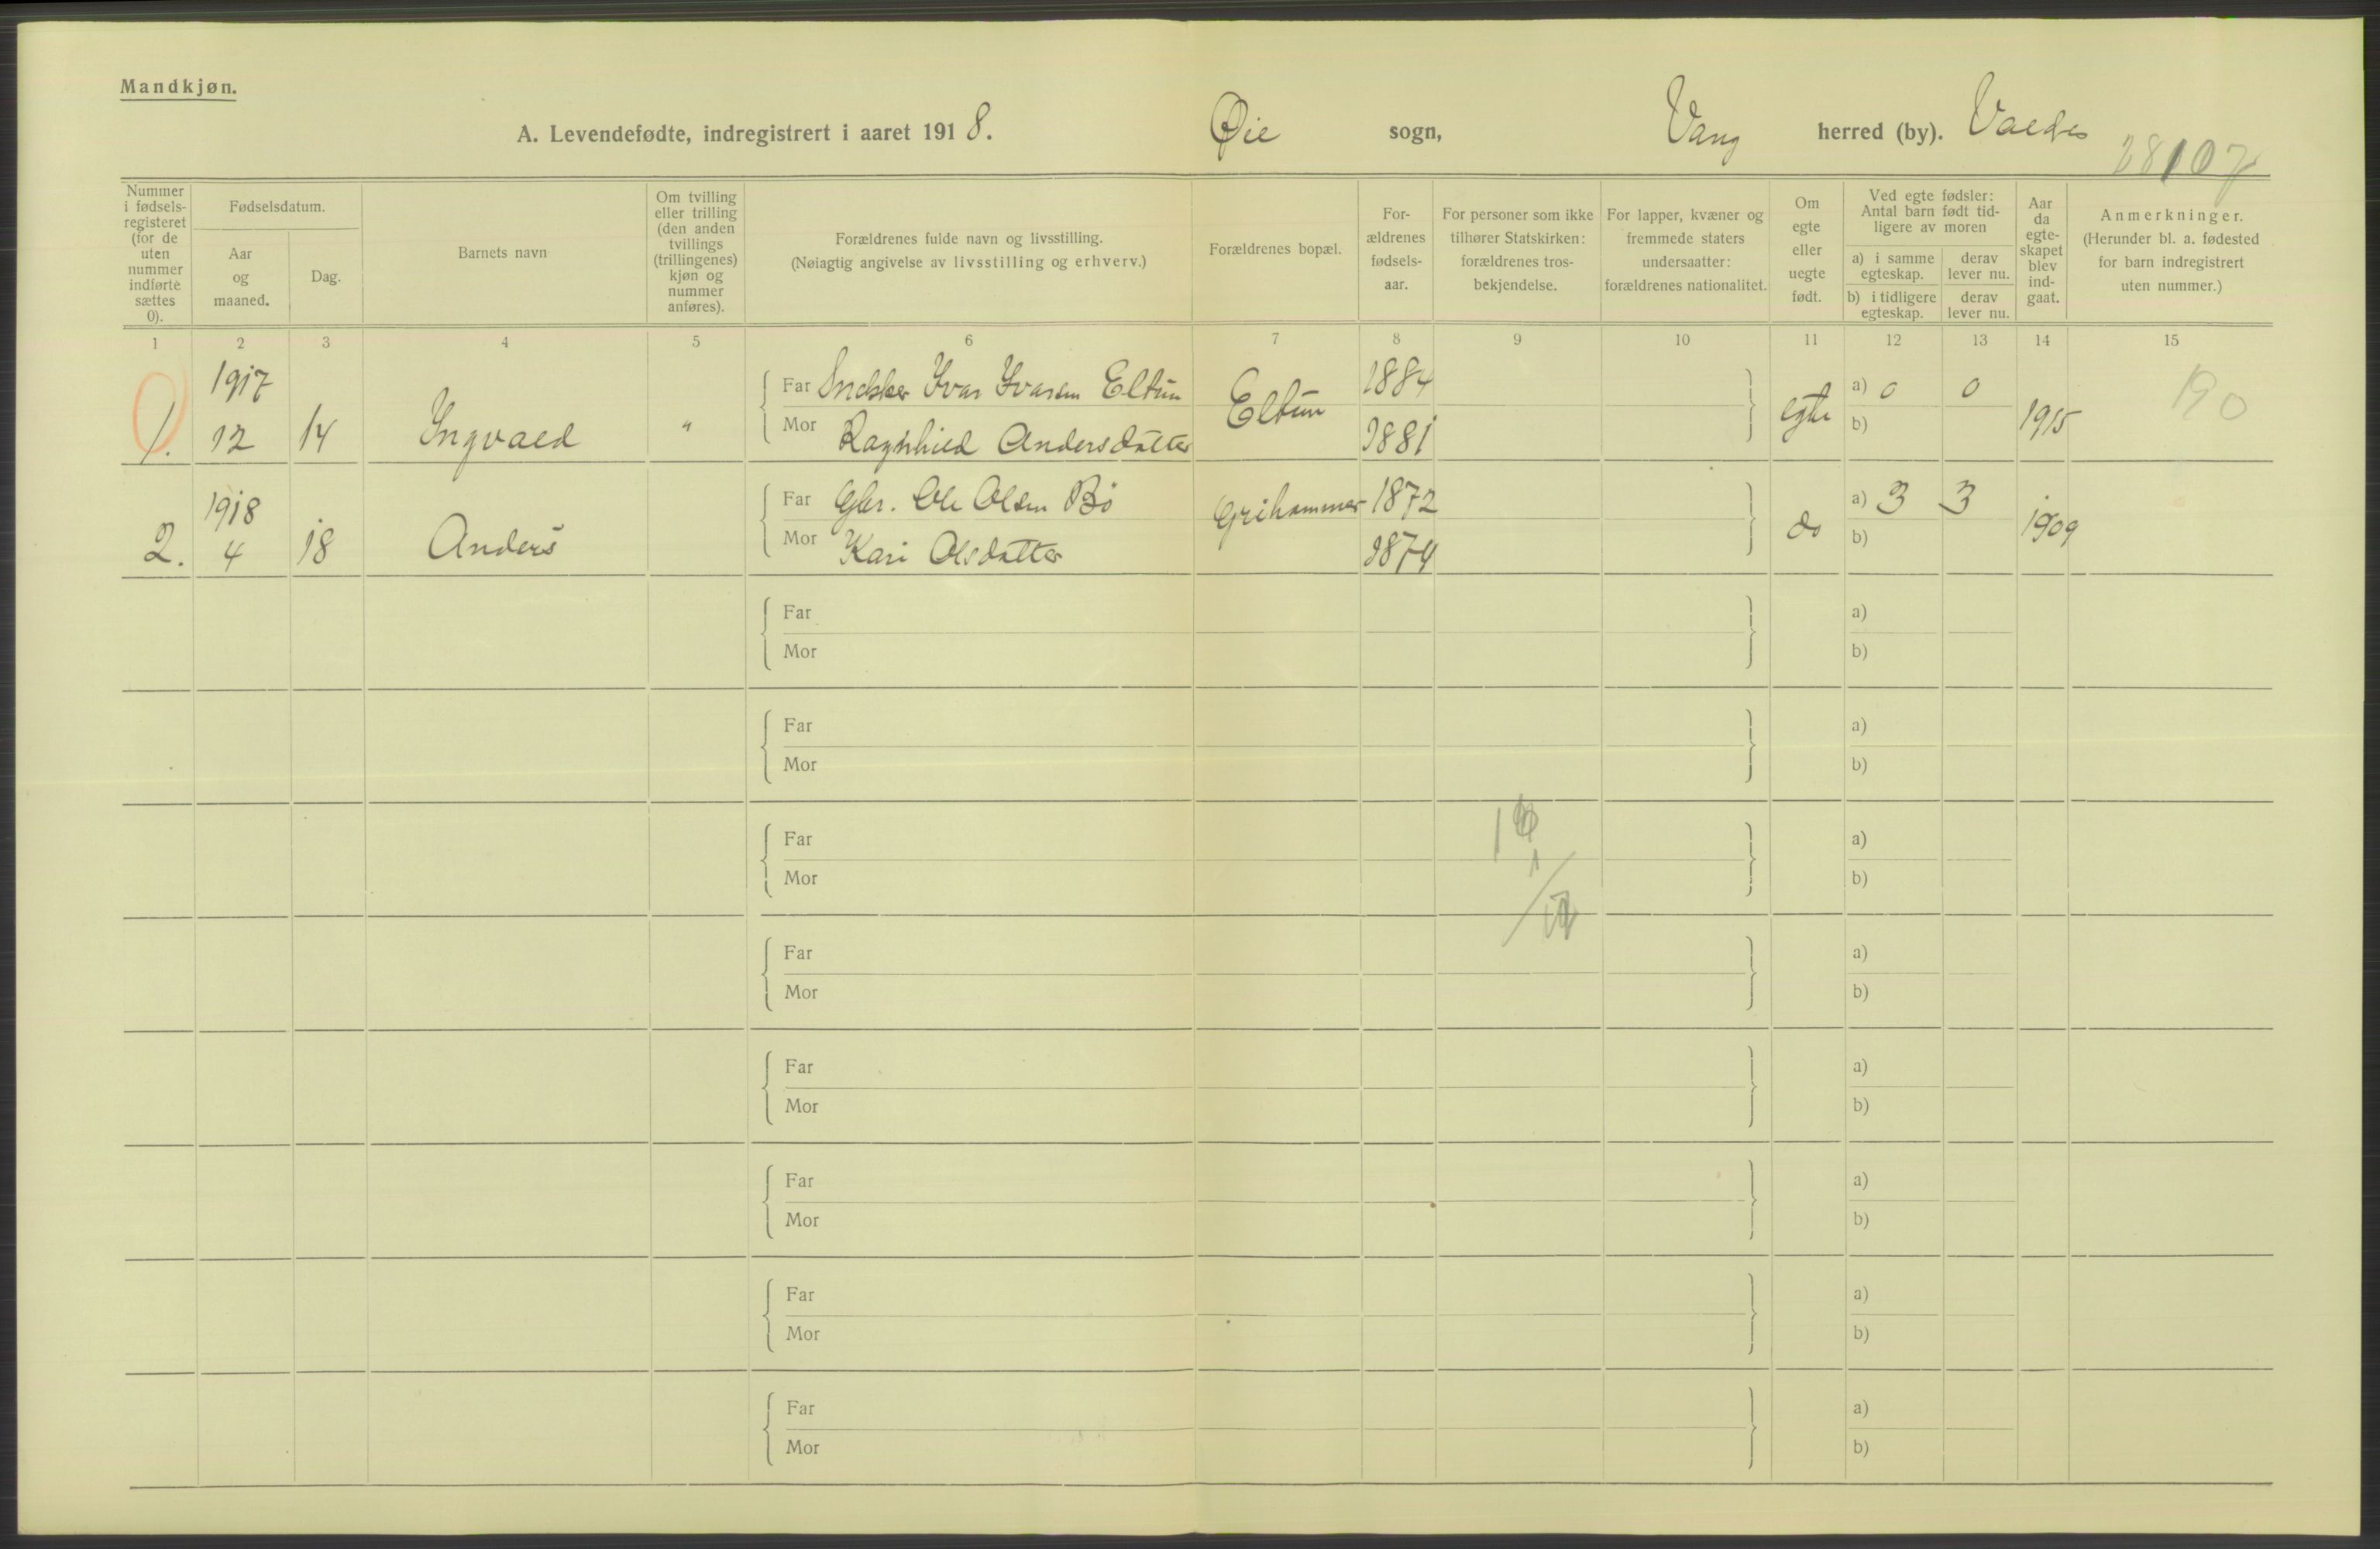 Mandkjøn.
A. Levendefødte, indregistrert i aaret 1918. Øie sogn, Vang herred (by). Valdres
28107
Nummer i fødsels-registeret (for de uten nummer indførte sættes 0).
Fødselsdatum.
Aar og maaned.
Dag.
Barnets navn
Om tvilling eller trilling (den anden tvillings (trillingenes) kjøn og nummer anføres).
Forældrenes fulde navn og livsstilling.
(Nøiagtig angivelse av livsstilling og erhverv.)
Forældrenes bopæl.
For-ældrenes fødsels-aar.
For personer som ikke tilhører Statskirken: forældrenes tros-bekjendelse.
For lapper, kvæner og fremmede staters undersaatter: forældrenes nationalitet.
Om egte eller uegte født.
Ved egte fødsler: Antal barn født tid-ligere av moren
a) i samme egteskap.
derav lever nu.
b) i tidligere egteskap.
derav lever nu.
Aar da egte-skapet blev ind-gaat.
Anmerkninger.
(Herunder bl. a. fødested for barn indregistrert uten nummer.)
1 2 3 4 5 6 7 8 9 10 11 12 13 14 15
1917 Far Snekker Ivar Ivarsen Eltun Eltun 1884 a) 0 0 190
1. 12 14 Ingvald " Mor Ragnhild Andersdatter 1881 egte b) 1915
1918 Far Gbr. Ole Olsen Bø Grihammer 1872 a) 3 3
2. 4 18 Anders Mor Kari Olsdatter 1874 do b) 1909
Far a)
Mor b)
Far a)
Mor b)
Far a)
Mor b)
Far a)
Mor b)
Far a)
Mor b)
Far a)
Mor b)
Far a)
Mor b)
Far a)
Mor b)